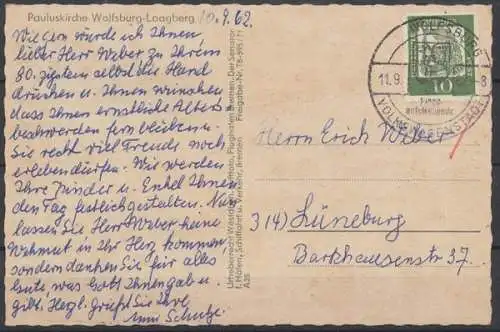 Pauluskirche Wolfsburg-Laagberg 10.9.62.
Wie gern würde ich Ihnen
lieber Herr Weber zu Ihrem
80. zigsten selbst die Hand
drücken u. Ihnen wünschen
dass Ihnen ernstliche Alters
beschwerden fern bleiben.
Sie recht viel Freude noch
erleben dürfen. Wie werden
Ihre Kinder u. Enkel Ihnen
den Tag festlich gestalten. Nun
lassen Sie Herr Weber keine
Wehmut in Ihr Herz kommen
sondern danken Sie für alles
Gute was Gott Ihnen gab u.
gibt. Herzl. grüßt Sie Ihre
Schulze.
Urheberrecht Westdt. Luftfoto, Flughafen Bremen, Der Senator
f. Häfen, Schiffahrt u. Verkehr, Bremen Freigabe-Nr. T8-595/71
A35
WOLFSBURG
11.9.
-8
10
VOLKSWAGENSTADT
Herrn Erich Weber
314) Lüneburg
Barckhausenstr 37.